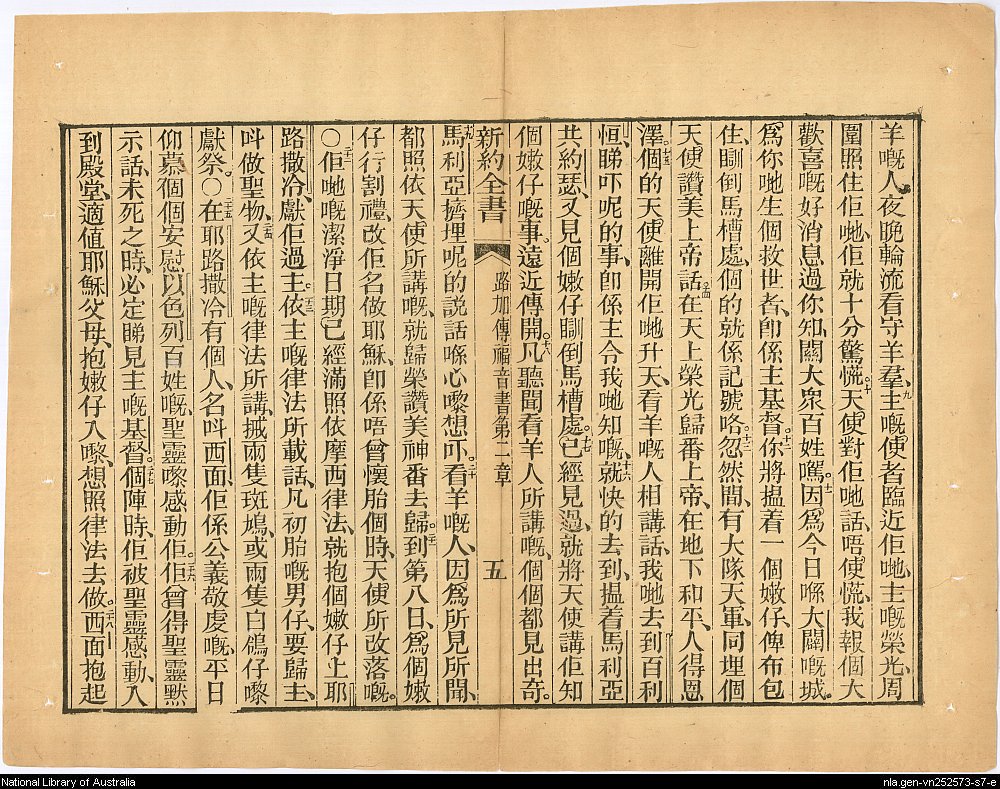 羊嘅人、夜晚輪流看守羊羣、九主嘅使者臨近佢哋、主嘅榮光、周
圍照住佢哋、佢就十分驚慌、十天使對佢哋話、唔使慌、我報個大
歡喜嘅好消息過你知、關大衆百姓嘅、十一因爲今日喺大闢嘅城、
爲你哋生個救世者、卽係主基督、十二你將搵着一個嫩仔、俾布包
住、瞓倒馬槽處、個的就係記號咯、十三忽然間、有大隊天軍、同埋個
天使讚美上帝話、十四在天上榮光歸番上帝、在地下和平、人得恩
澤、十五個的天使離開佢哋升天、看羊嘅人相講話、我哋去到百利
恒、睇吓呢的事、卽係主令我哋知嘅、十六就快的去到、搵着馬利亞
共約瑟、又見個嫩仔瞓倒馬槽處、十七已經見過、就將天使講佢知
個嫩仔嘅事、遠近傳開、十八凡聽聞看羊人所講嘅、個個都見出奇、
新約全書 路加傳福音書第二章 五
十九馬利亞擠埋呢的說話喺心嚟想吓、二十看羊嘅人、因爲所見所聞、
都照依天使所講嘅、就歸榮讚美神番去歸、二一到第八日、爲個嫩
仔行割禮、改佢名做耶穌、卽係唔曾懷胎個時、天使所改落嘅、
○二二佢哋嘅潔淨日期、已經滿照依摩西律法、就抱個嫩仔上耶
路撒冷、獻佢過主、二三依主嘅律法所載話、凡初胎嘅男仔、要歸主、
呌做聖物、二四又依主嘅律法所講、搣兩隻斑鳩、或兩隻白鴿仔嚟
獻祭、○二五在耶路撒冷有個人、名呌西面、佢係公義敬虔嘅、平日
仰慕個個安慰以色列百姓嘅、聖靈嚟感動佢、二六佢曾得聖靈默
示話、未死之時、必定睇見主嘅基督、二七個陣時、佢被聖靈感動、入
到殿堂、適値耶穌父母、抱嫩仔入嚟、想照律法去做、二八西面抱起
National Library of Australia
nla.gen-vn252573-s7-e